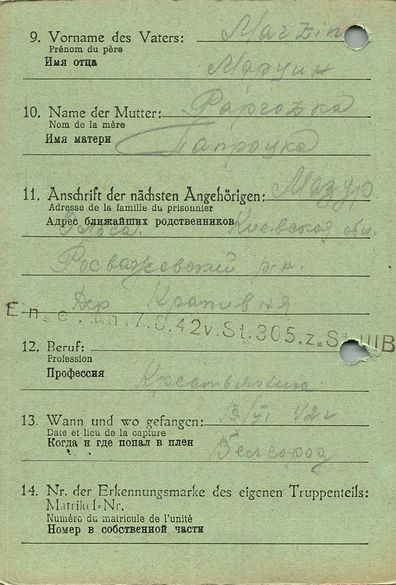 9. Vorname des Vaters: Marzin
Prénom du père
Имя отца Марцин
10. Name der Mutter: Paprozka
Nom de la mère
Имя матери Папроцка
11. Anschrift der nächsten Angehörigen:
Adresse de la famille du prisonnier
Адрес ближайших родственников Киевская обл.
Розважевский р-н.
Дер Крапивня
7.8.42 v. St. 305. z. St. IIIB
12. Beruf:
Profession
Профессия Крестьянин
13. Wann und wo gefangen: 42г
Date et lieu de la capture
Когда и где попал в плен Белгород
14. Nr. der Erkennungsmarke des eigenen Truppenteils:
Matrikel-Nr.
Numéro du matricule de l'unité
Номер в собственной части